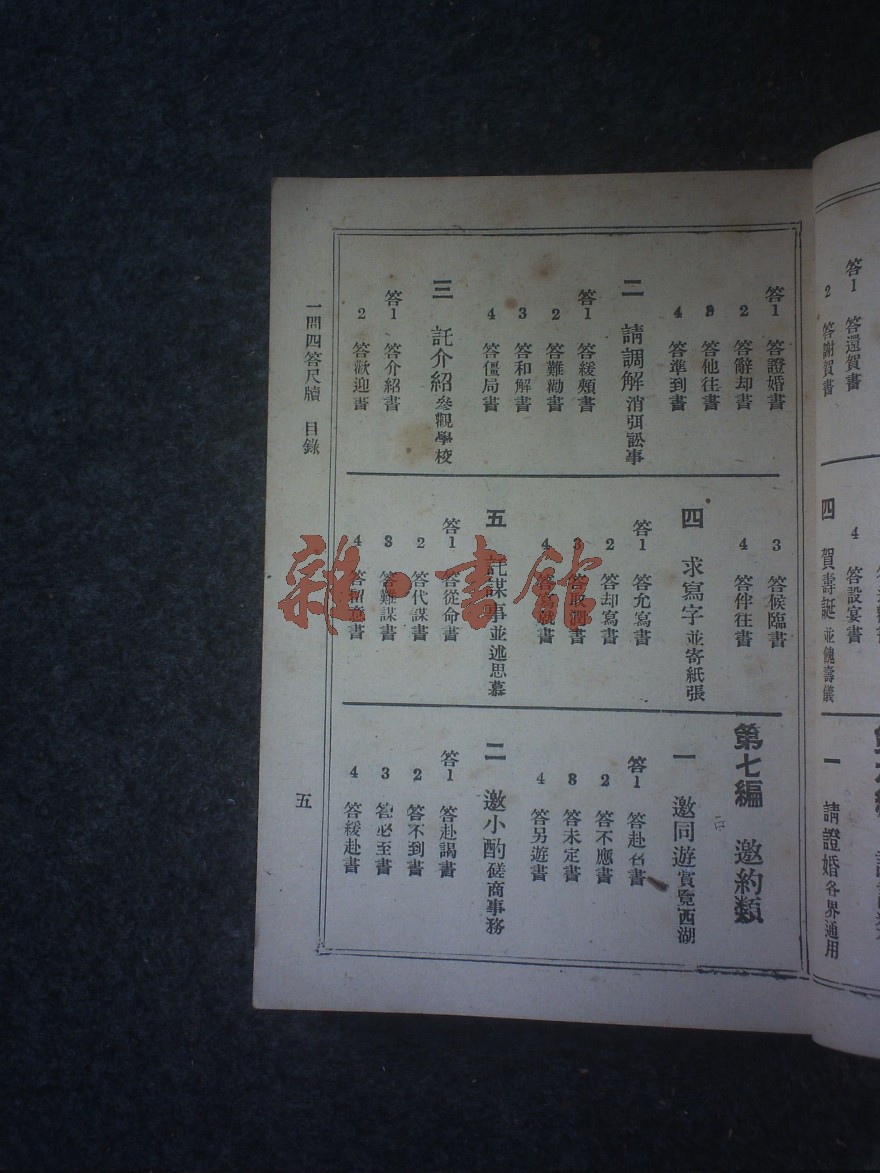 答1 答還賀書
2 答謝賀書
4 答設宴書
四 賀壽誕並餽壽儀
一 請證婚各界通用
答1 答證婚書
2 答辭却書
3 答他往書
4 答準到書
二 請調解消弭訟事
答1 答緩頰書
2 答難勸書
3 答和解書
4 答僵局書
三 託介紹參觀學校
答1 答介紹書
2 答歡迎書
3 答候臨書
4 答伴往書
四 求寫字並寄紙張
答1 答允寫書
2 答却寫書
3 答取潤書
4 答寫就書
五 託謀事並述思慕
答1 答從命書
2 答代謀書
3 答難謀書
4 答留意書
第七編 邀約類
一 邀同遊賞覽西湖
答1 答赴召書
2 答不應書
3 答未定書
4 答另遊書
二 邀小酌磋商事務
答1 答赴謁書
2 答不到書
3 答必至書
4 答緩赴書
一問四答尺牘 目錄
五
雜·書館